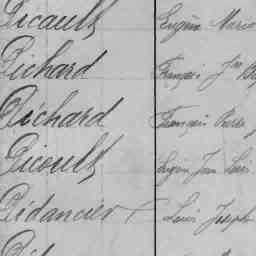 Picault Eugène Marie
Pichard François Jn B
Pichard François Pierre
Picoult Eugène Jean Louis
Pidancier Louis Joseph